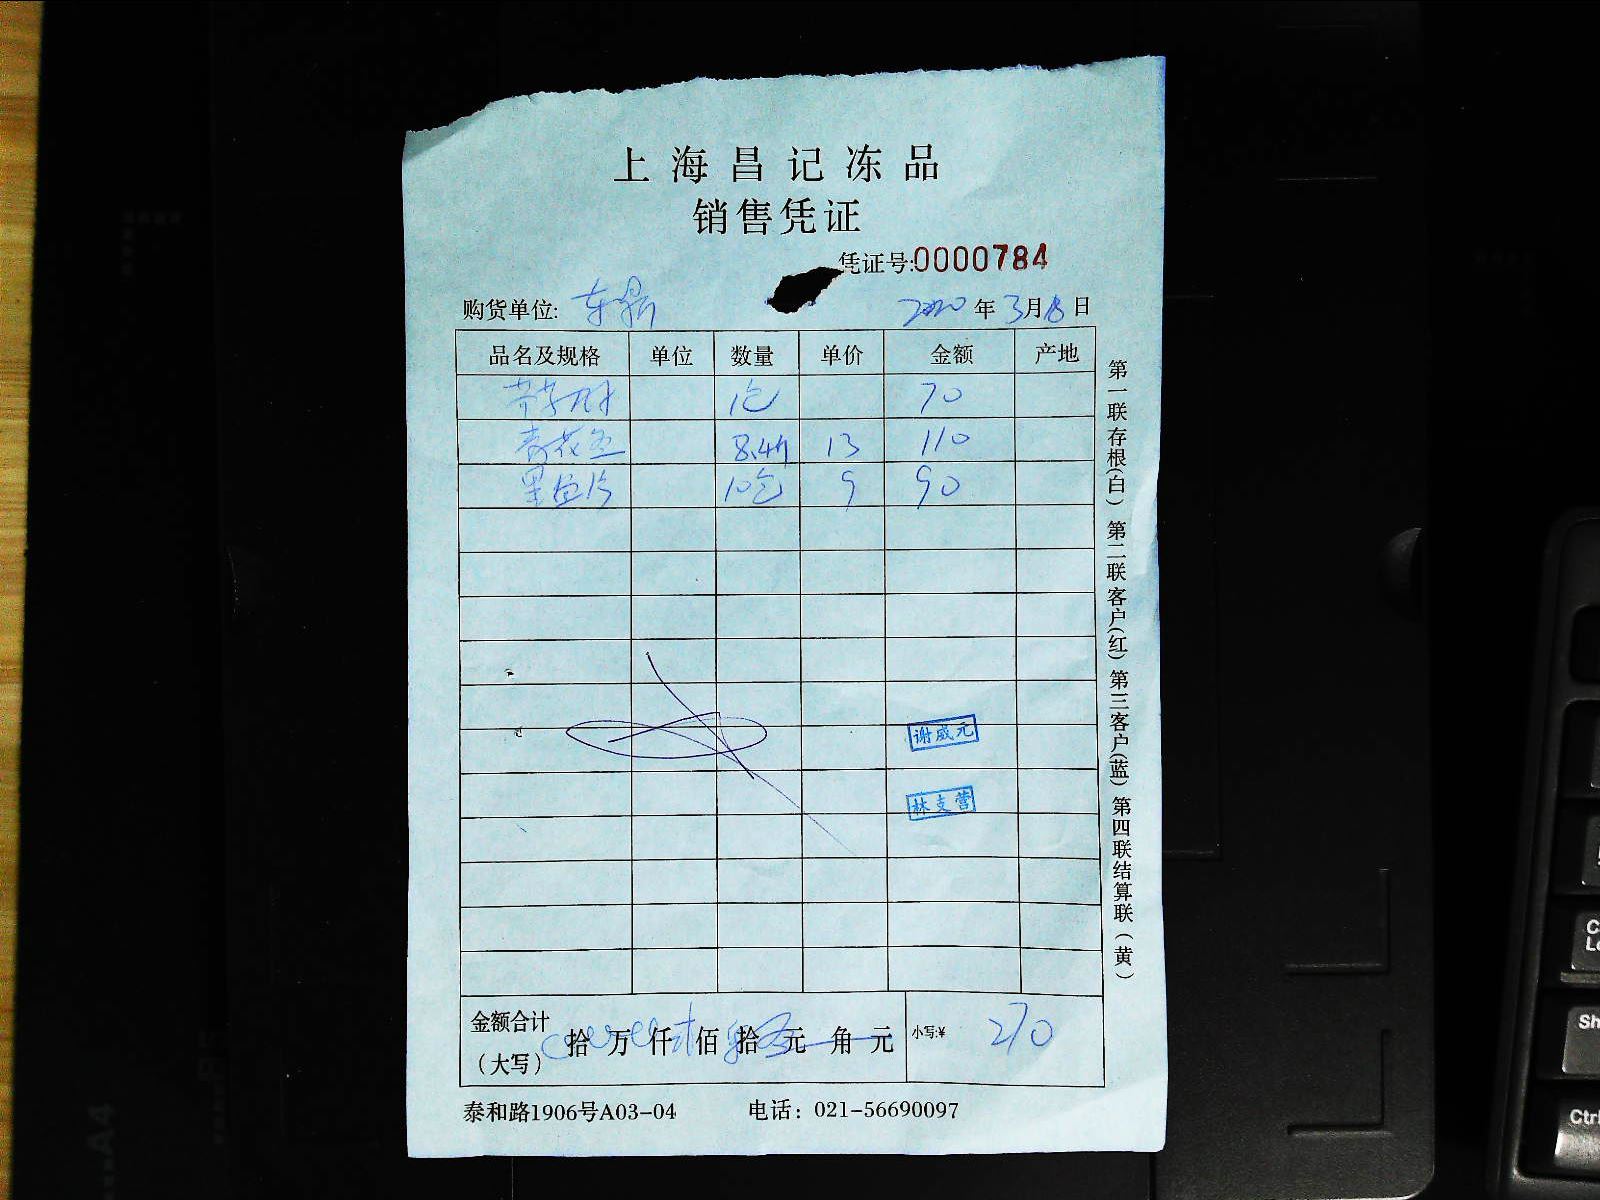 上海昌记冻品
销售凭证
凭证号:0000784
购货单位: 东鼎 2020年3月18日
品名及规格 单位 数量 单价 金额 产地
1包 70
8.4斤 13 110
黑鱼片 10包 9 90
谢威元
林支营
金额合计(大写) 拾 万 仟 佰 拾 元 角 元 小写:¥ 270
泰和路1906号A03-04 电话: 021-56690097
第一联存根(白) 第二联客户(红) 第三客户(蓝) 第四联结算联(黄)
A4
Ctrl